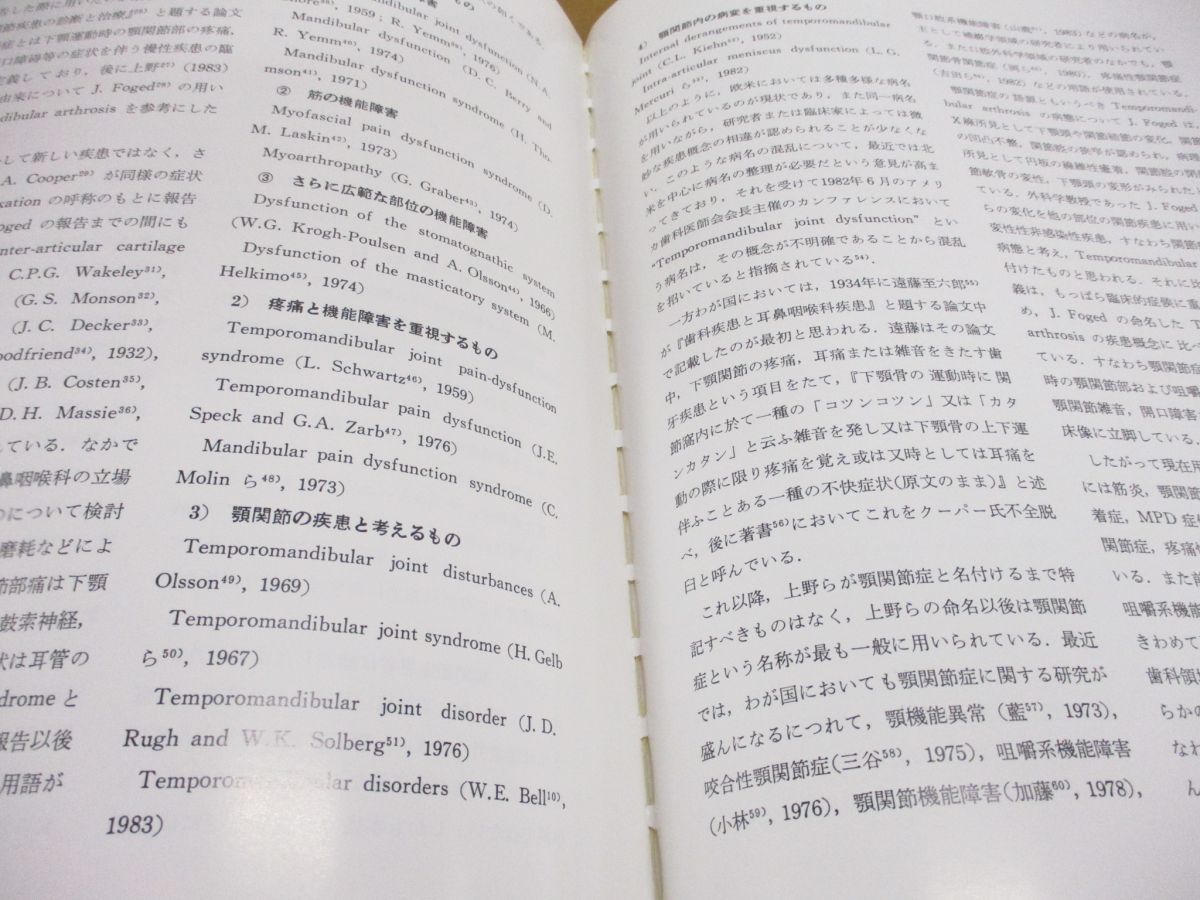 疾患の診断と治療』²⁶⁾ と題する論文
症とは下顎運動時の顎関節部の疼痛,
口障碍等の症状を伴う慢性疾患の臨
義しており, 後に上野²⁷⁾ (1983)
由来について J. Foged²⁸⁾ の用い
dibular arthrosis を参考にした
して新しい疾患ではなく, さ
A. Cooper²⁹⁾ が同様の症状
xation の呼称のもとに報告
oged の報告までの間にも
nter-articular cartilage
C.P.G. Wakeley³¹⁾,
(G.S. Monson³²⁾,
(J.C. Decker³³⁾,
oodfriend³⁴⁾, 1932),
(J.B. Costen³⁵⁾,
D.H. Massie³⁶⁾,
れている. なかで
鼻咽喉科の立場
のについて検討
磨耗などによ
節部痛は下顎
鼓索神経,
状は耳管の
ndrome と
報告以後
用語が
Mandibular dysfunction (D.C. Berry and
R. Yemm⁴⁰⁾, 1974)
Mandibular dysfunction syndrome (H. Tho-
mson⁴¹⁾, 1971)
② 筋の機能障害
Myofascial pain dysfunction syndrome (D.
M. Laskin⁴²⁾, 1973)
Myoarthropathy (G. Graber⁴³⁾, 1974)
③ さらに広範な部位の機能障害
Dysfunction of the stomatognathic system
(W.G. Krogh-Poulsen and A. Olsson⁴⁴⁾, 1966)
Dysfunction of the masticatory system (M.
Helkimo⁴⁵⁾, 1974)
2) 疼痛と機能障害を重視するもの
Temporomandibular joint pain-dysfunction
syndrome (L. Schwartz⁴⁶⁾, 1959)
Temporomandibular pain dysfunction (J.E.
Speck and G.A. Zarb⁴⁷⁾, 1976)
Mandibular pain dysfunction syndrome (C.
Molin ら⁴⁸⁾, 1973)
3) 顎関節の疾患と考えるもの
Temporomandibular joint disturbances (A.
Olsson⁴⁹⁾, 1969)
Temporomandibular joint syndrome (H. Gelb
ら⁵⁰⁾, 1967)
Temporomandibular joint disorder (J.D.
Rugh and W.K. Solberg⁵¹⁾, 1976)
Temporomandibular disorders (W.E. Bell¹⁰⁾,
1983)
4) 顎関節内の病変を重視するもの
Internal derangements of temporomandibular
joint (C.L. Kiehn⁵²⁾, 1952)
Intra-articular meniscus dysfunction (L.G.
Mercuri ら⁵³⁾, 1982)
以上のように, 欧米においては多種多様な病名
が用いられているのが現状であり, また同一病名
を用いながら, 研究者または臨床家によっては微
妙な疾患概念の相違が認められることが少なくな
い. このような病名の混乱について, 最近では北
米を中心に病名の整理が必要だという意見が高ま
ってきており, それを受けて1982年6月のアメリ
カ歯科医師会会長主催のカンファレンスにおいて
“Temporomandibular joint dysfunction” とい
う病名は, その概念が不明確であることから混乱
を招いていると指摘されている⁵⁴⁾.
一方わが国においては, 1934年に遠藤至六郎⁵⁵⁾
が『歯科疾患と耳鼻咽喉科疾患』と題する論文中
で記載したのが最初と思われる. 遠藤はその論文
中, 下顎関節の疼痛, 耳痛または雑音をきたす歯
牙疾患という項目をたて,『下顎骨の運動時に関
節窩内に於て一種の「コツンコツン」又は「カタ
ンカタン」と云ふ雑音を発し又は下顎骨の上下運
動の際に限り疼痛を覚え或は又時としては耳痛を
伴ふことある一種の不快症状(原文のまま)』と述
べ, 後に著書⁵⁶⁾においてこれをクーパー氏不全脱
臼と呼んでいる.
これ以降, 上野らが顎関節症と名付けるまで特
記すべきものはなく, 上野らの命名以後は顎関節
症という名称が最も一般に用いられている. 最近
では, わが国においても顎関節症に関する研究が
盛んになるにつれて, 顎機能異常 (藍⁵⁷⁾, 1973),
咬合性顎関節症(三谷⁵⁸⁾, 1975), 咀嚼系機能障害
(小林⁵⁹⁾, 1976), 顎関節機能障害(加藤⁶⁰⁾, 1978),
の凹凸不整, 関節腔の狭窄が認められ, 病理
ている. 外科学教授であった J. Foged は
らの変化を他の部位の関節疾患に用い
変性性非感染性疾患, すなわち関節
病態と考え, Temporomandibular
付けたものと思われる. それに比
義は, もっぱら臨床的症候に重
め, J. Foged の命名した下
arthrosis の疾患概念に比べ
ている. すなわち顎関節症
時の顎関節部および咀嚼
顎関節雑音, 開口障害
床像に立脚している.
したがって現在用
には筋炎, 顎関節
着症, MPD 症
関節症, 疼痛
いる. また前
咀嚼系機能
きわめて
歯科領域
らかの
なわ
ん